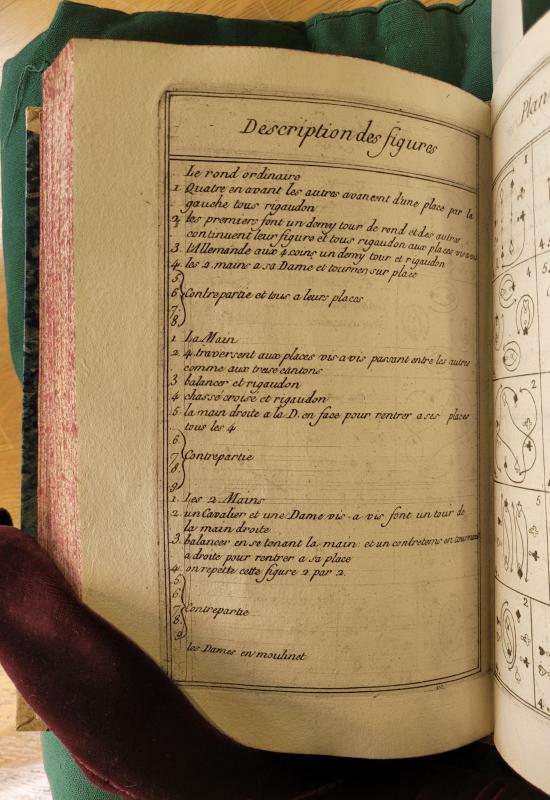 Description des figures
Le rond ordinaire
1. Quatre en avant les autres avancent d'une place par la
gauche tous rigaudon
2. les premiers font un demy tour de rond et des autres
continuent leur figure et tous rigaudon aux places vis a vis
3. l'Allemande aux 4 coins un demy tour et rigaudon
4. les 2. mains a sa Dame et tournen sur place
5.
6 Contrepartie et tous a leurs places
7.
8.
1 La Main
2 4. traversent aux places vis a vis passant entre les autres
comme aux treise cantons
3 balancer et rigaudon
4 chassé croisé et rigaudon
5. la main droite a la D. en face pour rentrer a ses places
tous les 4
6.
7 Contrepartie
8.
9
1. Les 2 Mains
2. un Cavalier et une Dame vis-a vis font un tour de
la main droite
3. balancer en se tenant la main: et un contretems en tournant
a droite pour rentrer a sa place
4. on repette cette figure 2 par 2.
5.
6.
7 Contrepartie
8.
9
les Dames en moulinet
Plan
1
4.
4
5
2
5
2
4.